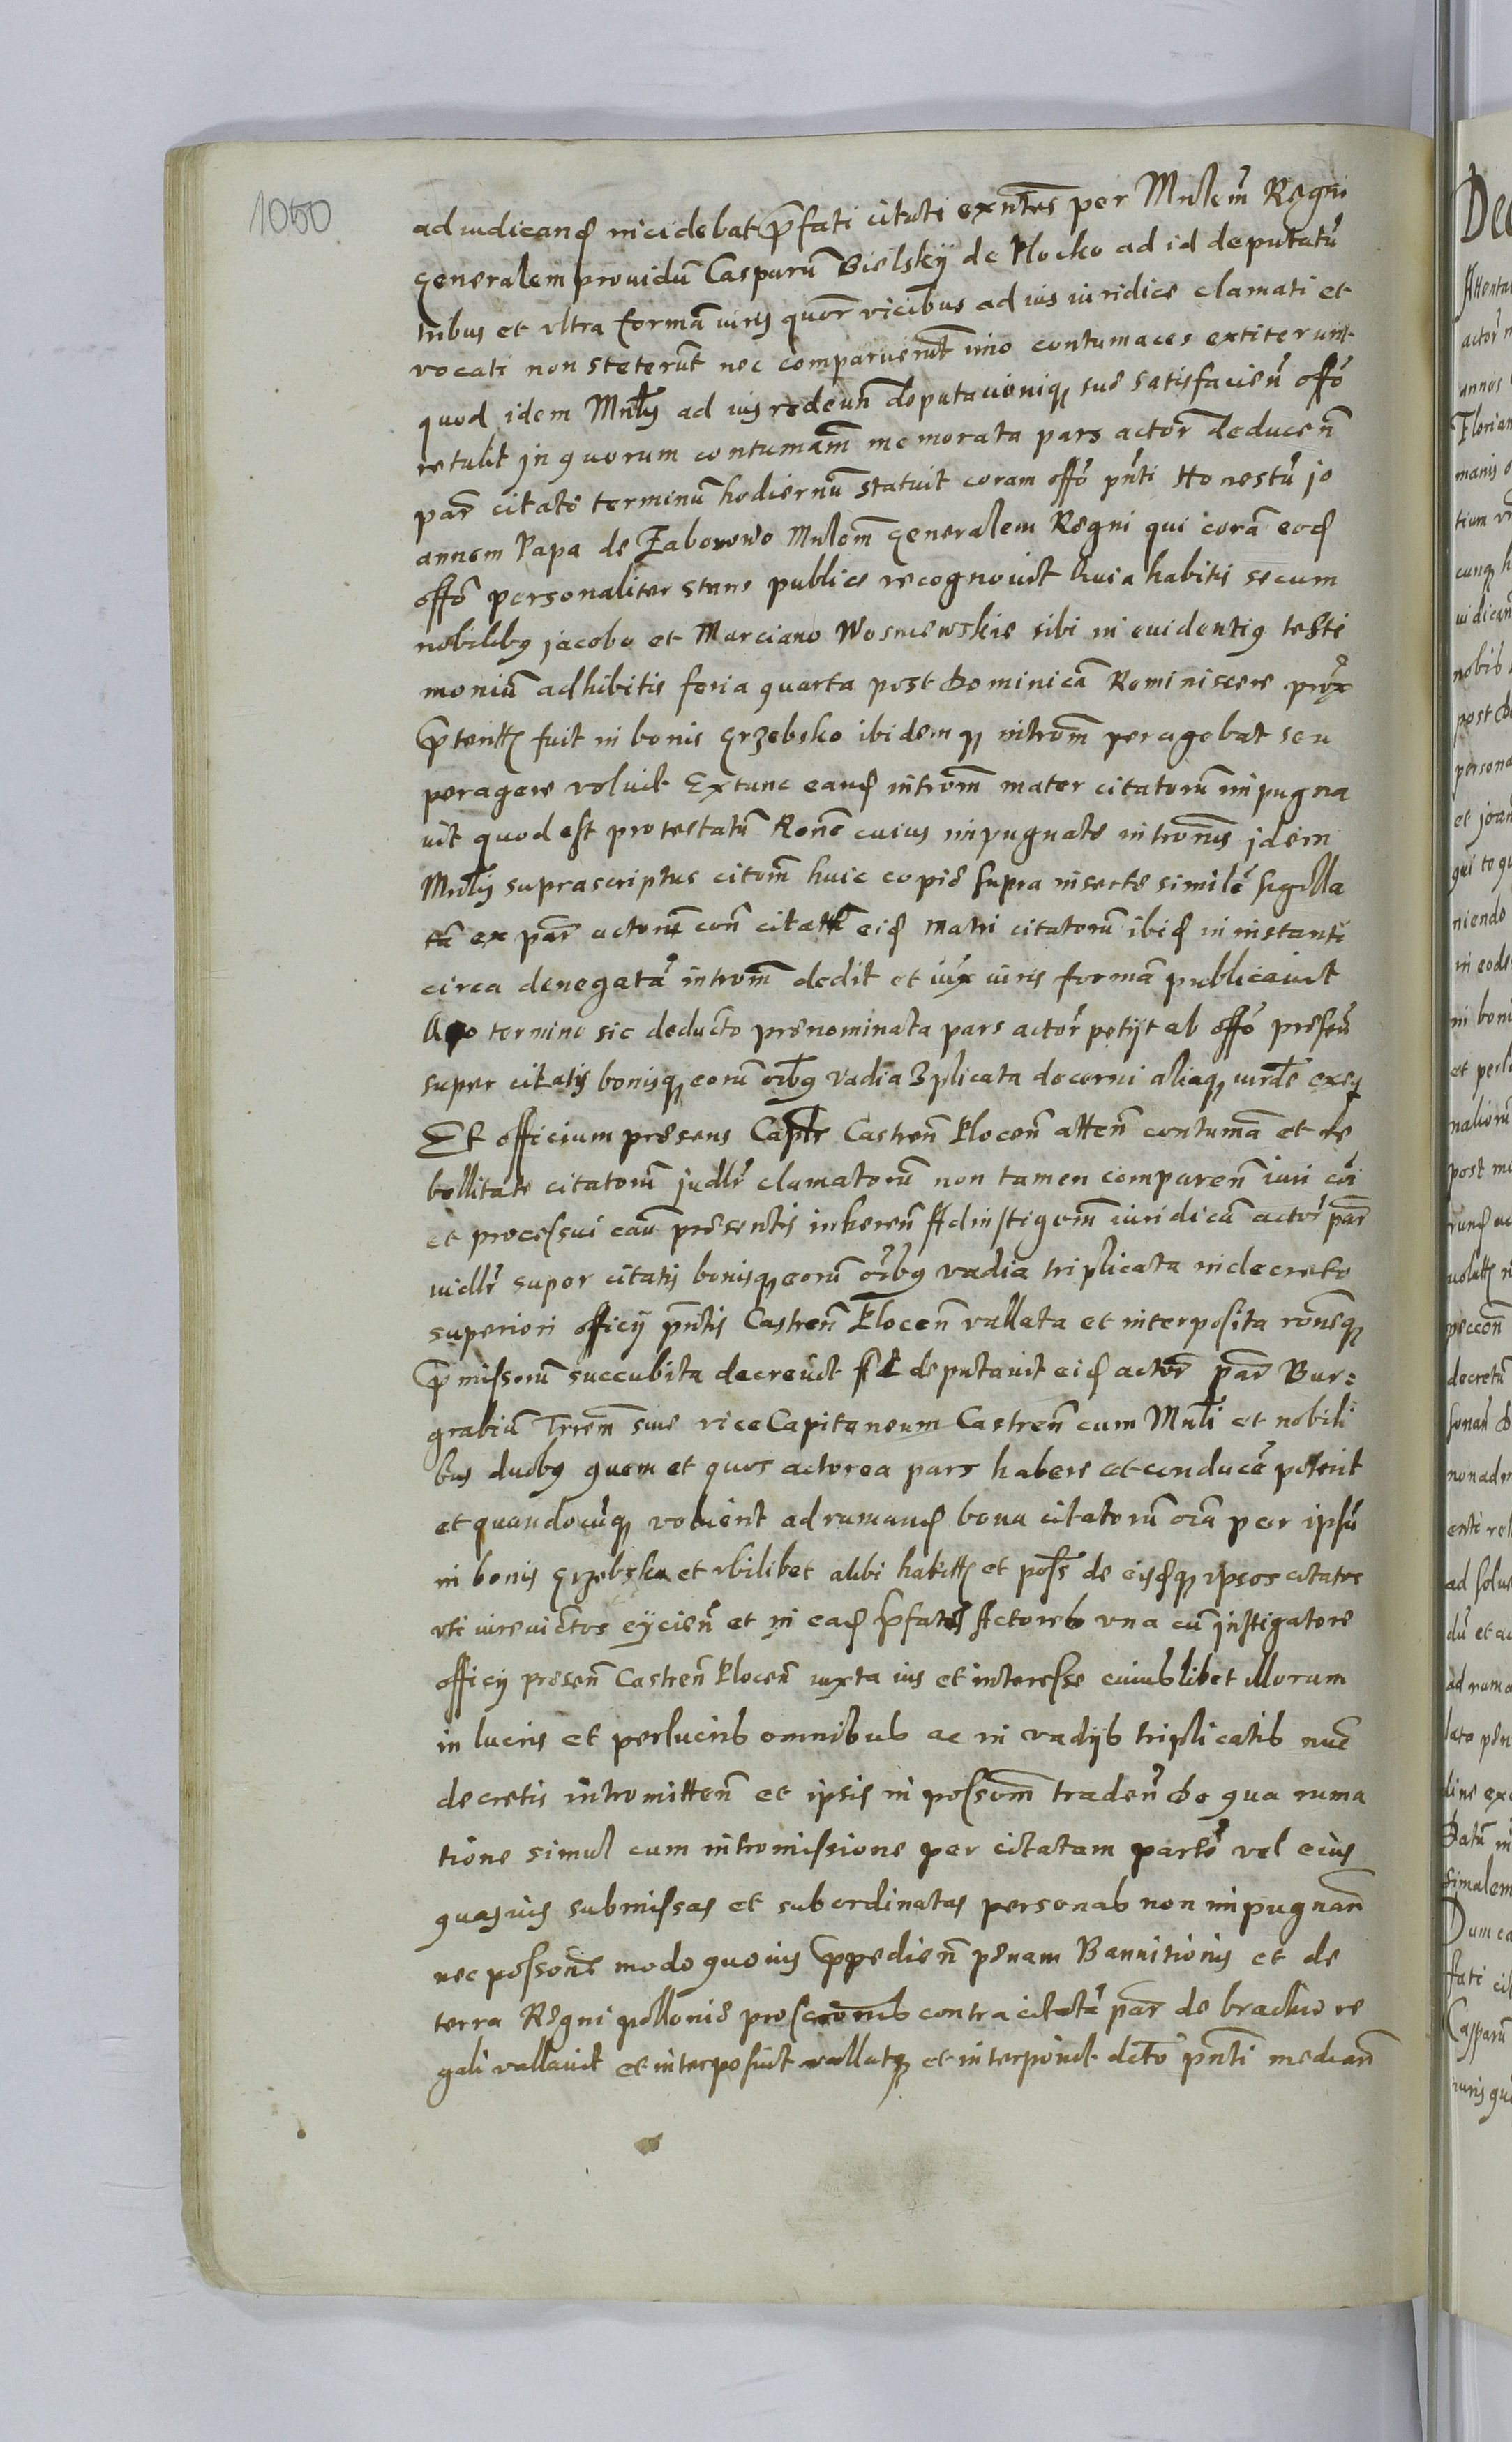 1050
ad iudicand incidebat p̄fati citati exn̄tes per Mnlem̄ Regni
generalem prouidū Casparū Bielsky de Plocko ad id deputatū
tribus et vltra formā iuris quor̄ vicibus ad ius iuridice clamati et
vocati non steterūt nec comparuerūt imo contumaces extiterunt
quod idem Mnlis̄ ad ius redeun̄ deputacioniq sue satisfacien̄ offō
retulit in quorum contumam̄ memorata pars actor̄ deducen̄
par̄ citate terminū hodiernū statuit coram offō pn̄ti Honestū jo
annem Papa de Zaborowo Mnlem̄ generalem Regni qui corā eod
offō personaliter stans publice recognouit Quia habitis secum
nobilibꝰ jacobo et Marciano Wosniewskie sibi in euidentiꝰ testi
moniū adhibitis feria quarta post Dominicā Reminiscere prox̄
p̄terit fuit in bonis Grzebsko ibidemq introm̄ peragebat seu
peragere voluit Extunc eand introm̄ mater citatorū impugna
uit quod est protestatū Ronē cuius impugnate intronis̄ jdem
Mnlis̄ suprascriptus citom̄ huic copie supra inserte similē sigilla
tā ex par̄ actorū con̄ citatū eid matri citatorū ibid in instanti
circa denegatā introm̄ dedit et iux̄ iuris formā publicauit
Quo termino sic deducto prenominata pars actor̄ petijt ab offō presen̄
super citatis bonisq eorū oibꝰ vadia 3plicata decerni aliaq iurdē exeq
Et officium presens Caple Castren̄ Plocen̄ atten̄ contumā et re
bellitate citatorū judlr̄ clamatorū non tamen comparen̄ iuri cōi
et processui cau̅ presentis inheren̄ Ad instigom̄ iuridicā actor̄ par̄
iudlr̄ super citatis bonisq eorū oibꝰ vadia triplicata in decreto
superiori officij pn̄tis Castren̄ Plocen̄ vallata et interposita ronēq
p̄missorū succubita decreuit Et deputauit eid actor̄ par̄ Bur:
grabiū Trrem̄ siue viceCapitaneum Castren̄ cum Mnli̅ et nobili
bus duobꝰ quem et quos actorea pars habere et conducē poterit
et quandocūq voluerit ad rumand bona citatorū oia per ipsū
in bonis Grzebsko et vbilibet alibi habitt et poss̄ de eisdq ipsos citatos
vti iure victos eijcien̄ et in ead p̄fates Actores vna cū instigatore
officij presen̄ Castren̄ Plocen̄ iuxta ius et interesse cuiuslibet illorum
in lucris et perlucris omnibus ac in vadijs triplicatis nuc̄
decretis intromitten̄ et ipsis in possom̄ traden̄ De qua ruma
tione simul cum intromissione per citatam partē vel eius
quasuis submissas et subordinatas personas non impugnan̄
nec possone modo quouis p̄pedien̄ penam Bannitionis et de
terra Regni pollonie proscronis contra citatā par̄ de brachio re
gali vallauit et interposuit vallatq et interponit dctō pn̄ti median̄